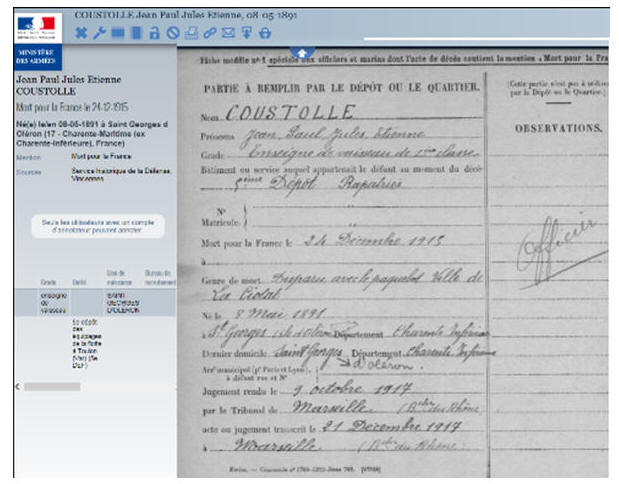 COUSTOLLE Jean Paul Jules Etienne, 08-05-1891
MINISTÈRE
DES ARMÉES
Jean Paul Jules Etienne
COUSTOLLE
Mort pour la France le 24-12-1915
Né(e) le/en 08-05-1891 à Saint Georges d
Oléron (17 - Charente-Maritime (ex
Charente-Inférieure), France)
Mention Mort pour la France
Sources Service historique de la Défense,
Vincennes
Seuls les utilisateurs avec un compte
d'annotateur peuvent annoter
Grade Unité Lieu de naissance Bureau de recrutement
enseigne de vaisseau
SAINT GEORGES D'OLERON
5e dépôt
des
équipages
de la flotte
à Toulon
(Var) (5e
Fiche modèle n° 1 spéciale aux officiers et marins dont l'acte de décès contient la mention « Mort pour la Fra
PARTIE À REMPLIR PAR LE DÉPÔT OU LE QUARTIER.
(Cette partie n'est pas à
par le Dépôt ou le Quartier.)
OBSERVATIONS.
Nom COUSTOLLE
Prénoms Jean, Paul, Jules, Etienne
Grade Enseigne de vaisseau de 1ère classe
Bâtiment ou service auquel appartenait le défunt au moment du décès
5ème Dépôt Rapatriés
N°
Matricule.
Officier
Mort pour la France le 24 Décembre 1915
à
Genre de mort Disparu avec le paquebot Ville de
La Ciotat
Né le 8 Mai 1891
à St Georges (Ile d'Oléron Département Charente Inférieure
Dernier domicile Saint Georges Département Charente Inférieure
d'Oléron.
Arrt municipal (pr Paris et Lyon),
à défaut rue et N°
Jugement rendu le 9 octobre 1917
par le Tribunal de Marseille (Bches du Rhône)
acte ou jugement transcrit le 21 Décembre 1917
à Marseille (Bches du Rhône)